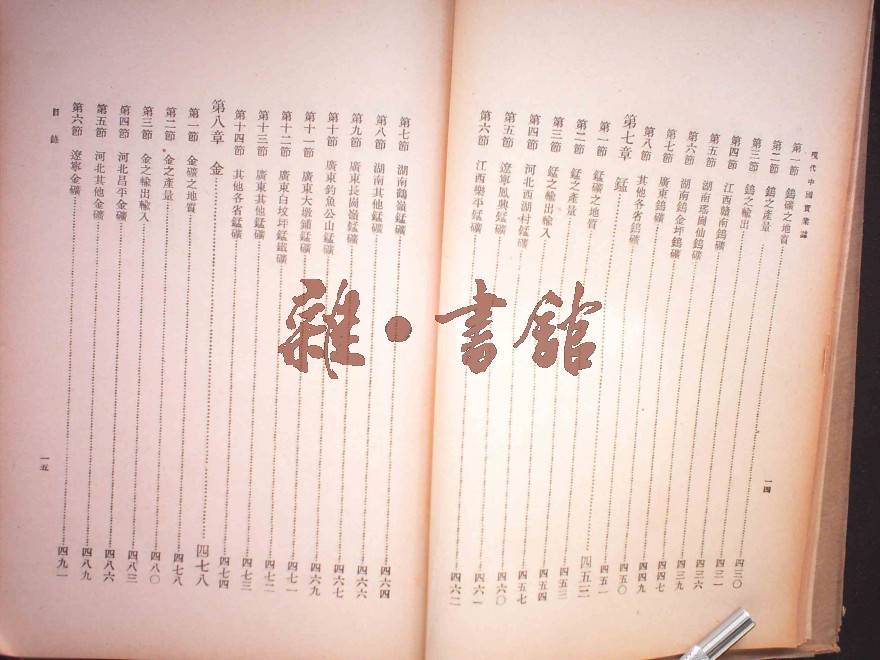 現代中國實業誌
第一節 鎢礦之地質 四三〇
第二節 鎢之產量 四三一
第三節 鎢之輸出 四三六
第四節 江西贛南鎢礦 四三九
第五節 湖南瑤崗仙鎢礦 四四七
第六節 湖南鎢金坪鎢礦 四四九
第七節 廣東鎢礦 四五〇
第八節 其他各省鎢礦 四五一
第七章 錳 四五二
第一節 錳礦之地質 四五三
第二節 錳之產量 四五四
第三節 錳之輸出輸入 四五七
第四節 河北西湖村錳礦 四六〇
第五節 遼寧鳳興錳礦 四六一
第六節 江西樂平錳礦 四六二
一四
第七節 湖南鶴嶺錳礦 四六四
第八節 湖南其他錳礦 四六六
第九節 廣東長崗嶺錳礦 四六七
第十節 廣東釣魚公山錳礦 四六九
第十一節 廣東大墩鋪錳礦 四七一
第十二節 廣東白坟坪錳鐵礦 四七二
第十三節 廣東其他錳礦 四七三
第十四節 其他各省錳礦 四七四
第八章 金 四七八
第一節 金礦之地質 四七八
第二節 金之產量 四八〇
第三節 金之輸出輸入 四八三
第四節 河北昌平金礦 四八六
第五節 河北其他金礦 四八九
第六節 遼寧金礦 四九一
目錄
一五
雜·書館